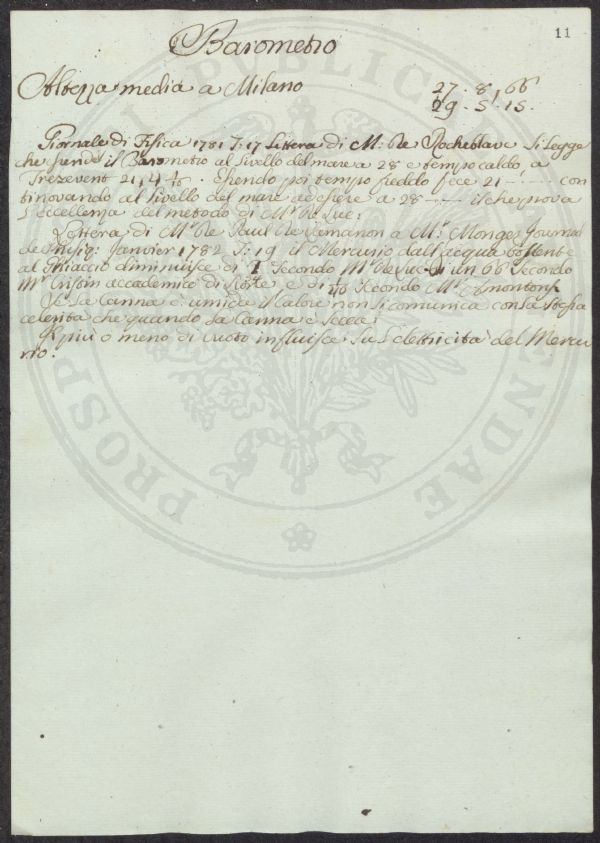 11
Barometro
Altezza media a Milano 27. 8, 66
29. 5. 15.
Giornale di Fisica 1781 T. 17 Lettera di M. de Rocheblave si legge
che essendo il Barometro al livello del mare a 28 e tempo caldo, a
Trezevent 21, 4. Essendo poi tempo freddo fece 21 con
tinovando al livello del mare ad essere a 28 il che prova
l'eccellenza del metodo di Mr. de Luc.
Lettera di Mr. de Paul de Lamanon a Mr. Monge, Journal
de Phisiq: Janvier 1782 T. 19 il Mercurio dall'acqua bollente
al Ghiaccio diminuisce di secondo Mr. de Luc di un 66 Secondo
Mr. accademico di e di secondo Mr. Amontons
Se la canna è umida il calore non si comunica con la stessa
celerita che quando la Canna è secca.
Il più o meno di vuoto influisce su l'elettricità del Mercu
rio.
PUBLICAE
PROSP ENDAE